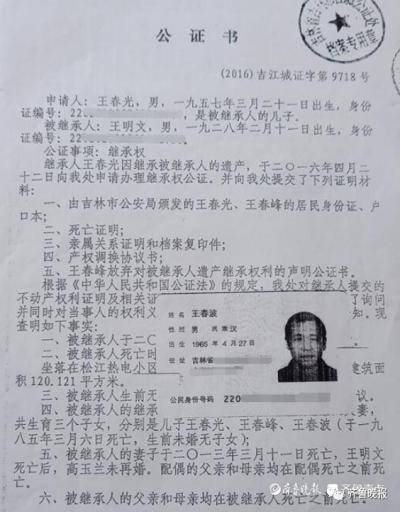 公证书
档案专用章
(2016)吉江城证字第9718号
申请人：王春光，男，一九五七年三月二十一日出生，身份
证编号：22，是被继承人的儿子。
被继承人：王明文，男，一九二八年二月十一日出生，身份
证编号：22
公证事项：继承权
继承人王春光因继承被继承人的遗产，于二〇一六年四月二
十二日向我处申请办理继承权公证。并向我处提交了下列证明材
料：
一、由吉林市公安局颁发的王春光、王春峰的居民身份证、户
口本；
二、死亡证明；
三、亲属关系证明和档案复印件；
四、产权调换协议书；
五、王春峰放弃对被继承人遗产继承权利的声明公证书。
根据《中华人民共和国公证法》的规定，我处对继承人提交的
不动产权利证明及相关证 了询问
并同时对当事人的权利义 知。现
查明如下事实：
一、被继承人于二〇
二、被继承人死亡时
坐落在松江热电小区 建筑面
积120.121平方米。
三、被继承人生前无 议。
四、被继承人的继承 妻，
共生育三个子女，分别是儿子王春光、王春峰、王春波（于一九
八五年三月六日死亡，生前未婚无子女）；
五、被继承人的妻子于二〇一三年三月十一日死亡，王明文
死亡后，高玉兰未再婚。配偶的父亲和母亲均在配偶死亡之前死
亡。
六、被继承人的父亲和母亲均在被继承人死亡之前死亡。
姓名 王春波
性别 男 民族 汉
出生 1965年4月27日
住址 吉林省
公民身份号码 220
齐鲁晚报
齐鲁壹点
@齐鲁晚报